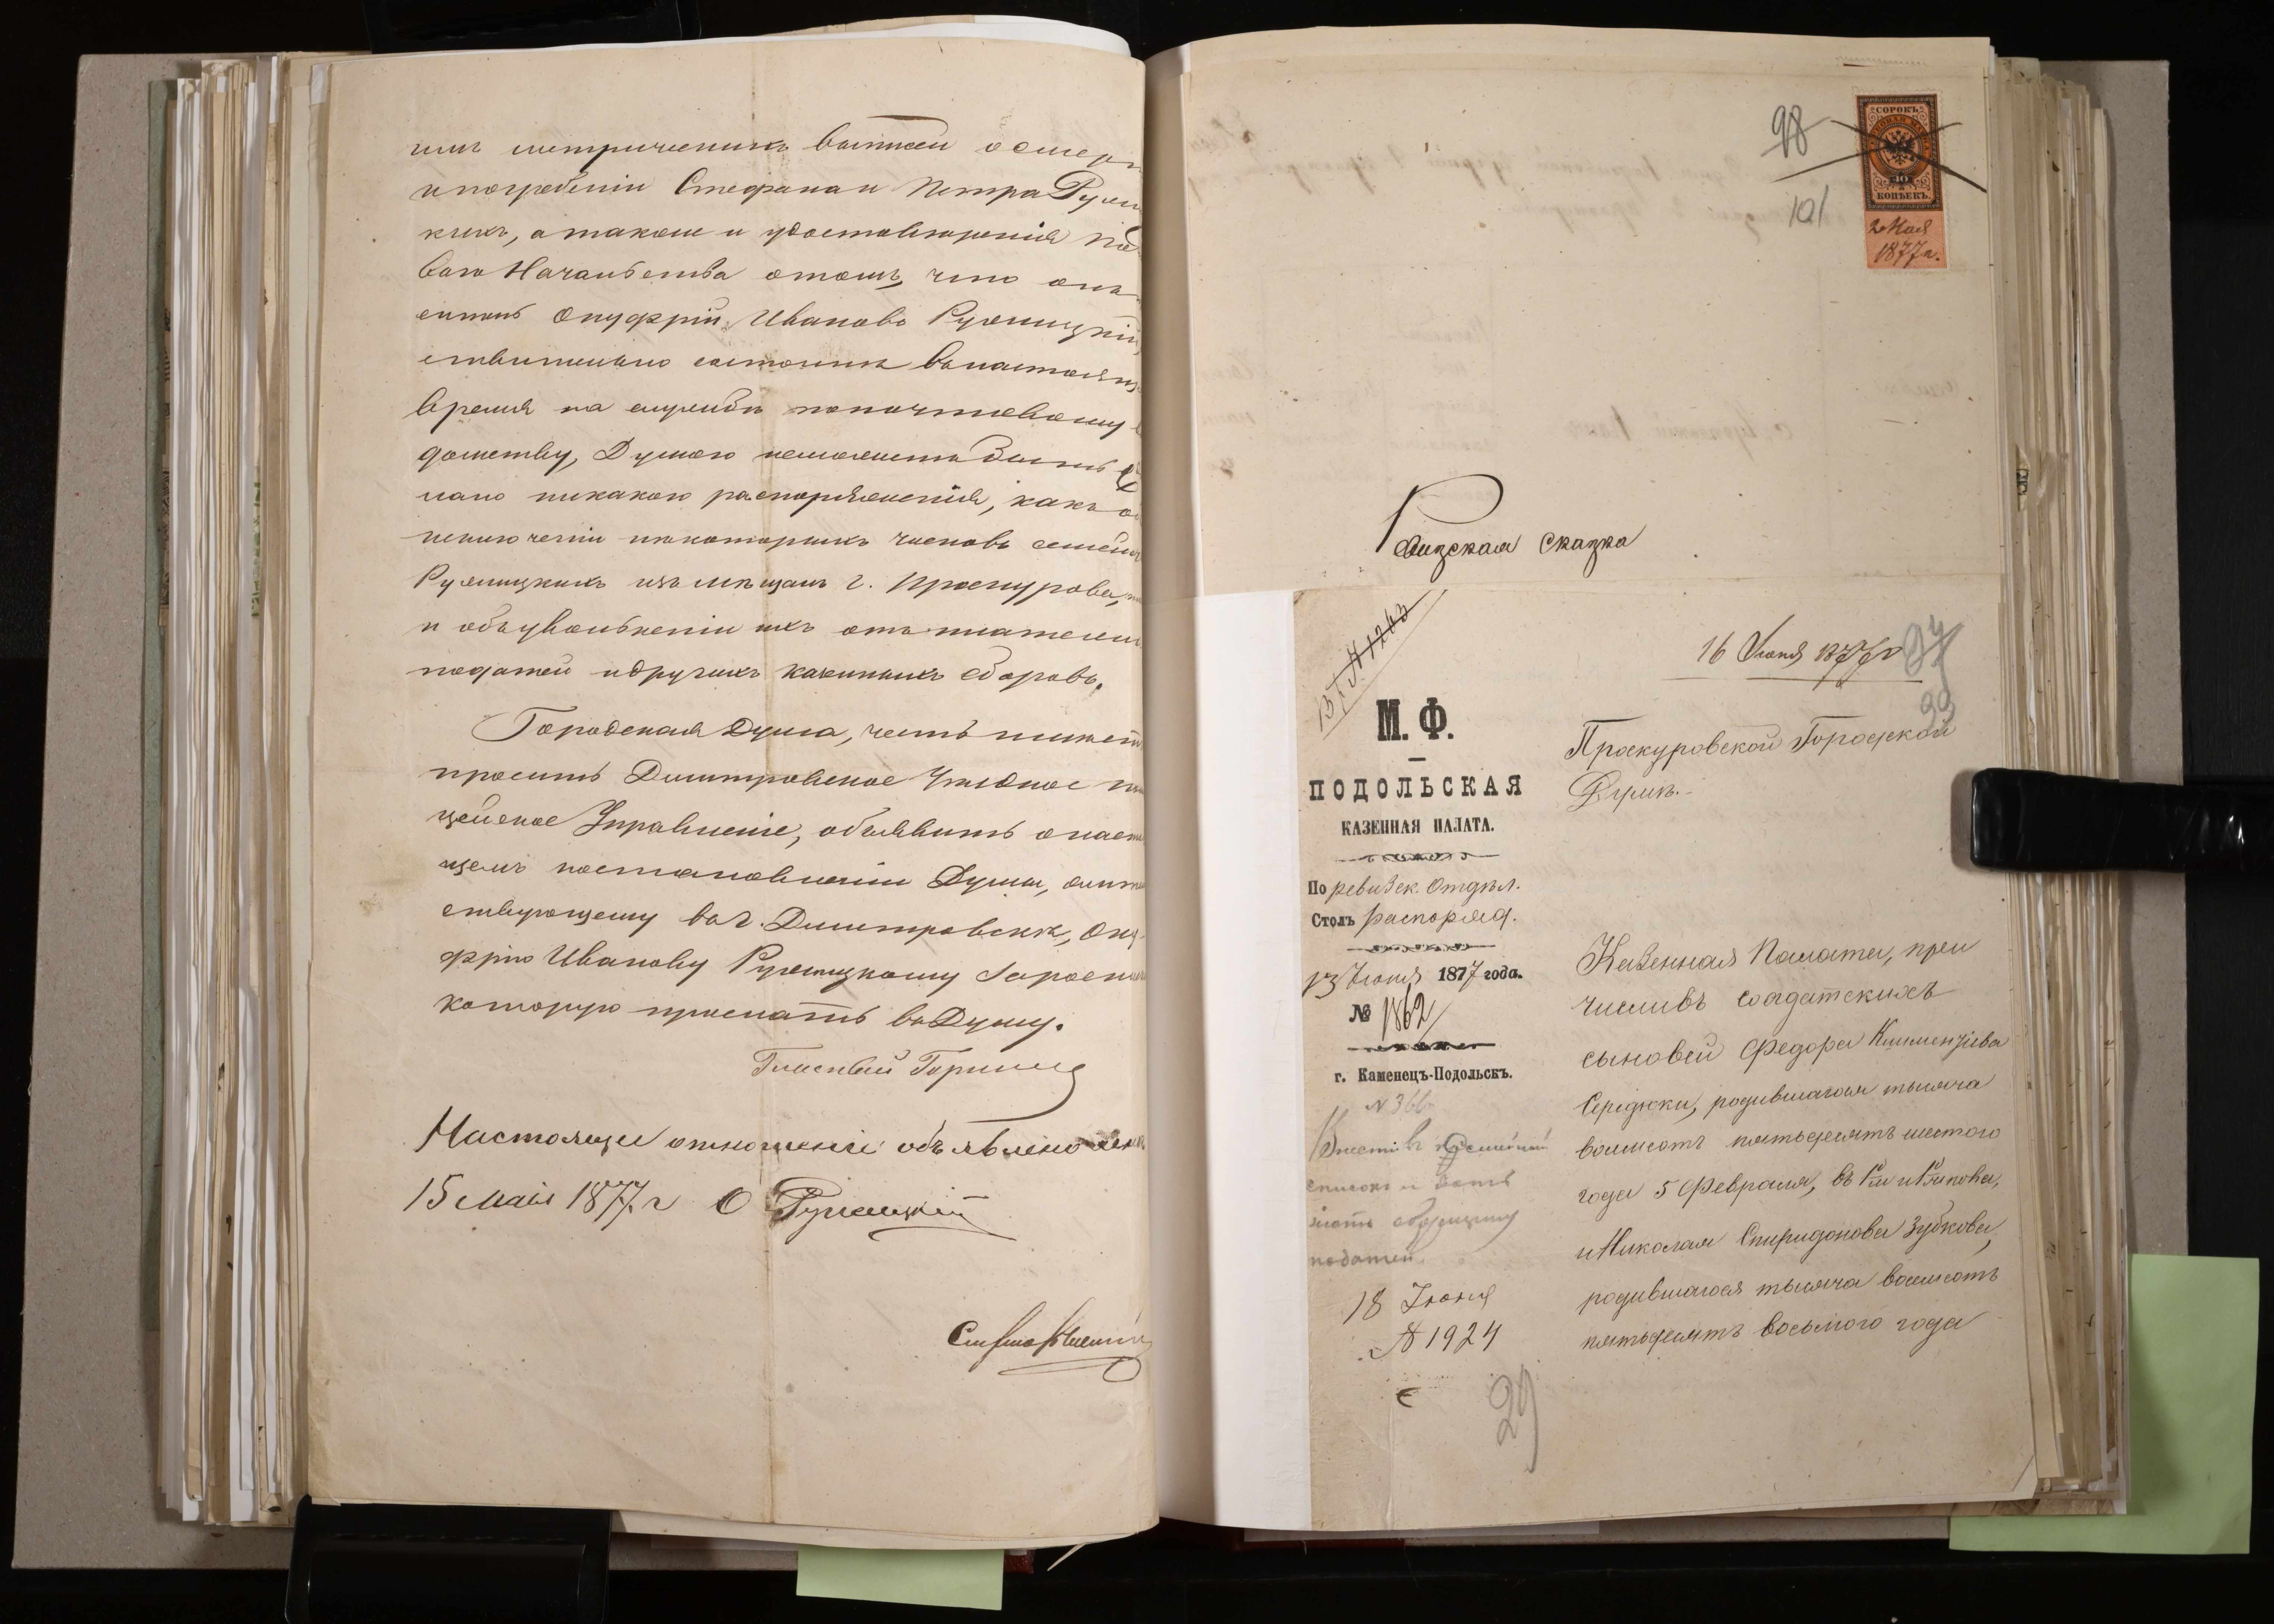 ихъ метрическихъ выписей о смерт
и погребеніи Стефана и Петра Руж
кихъ, а также и удостовѣренія
ваго Начальства о томъ, что онъ
Онуфрій Ивановъ Ружицкій
ствительно состоитъ въ настоящ
время на службѣ по почтовому
домству, Думою неможетъ быть
лано никакого распоряженія, какъ о
исключеніи нѣкоторыхъ членовъ семей
Ружицкихъ изъ мѣщанъ г. Проскурова,
и объ увольненіи ихъ отъ платежа
податей и другихъ казенныхъ сборовъ.
Городская Дума, честь имѣетъ
просить Дмитровское Уѣздное
цейское Управленіе, объявить о наст
щемъ постановленіи Думы,
ствующему въ г. Дмитровскѣ, Ону
фрію Иванову Ружицкому
которую прислать въ Думу.
Гласный
Настоящее отношеніе объявлено
15 мая 1877 г О Ружицкій
98
101
СОРОКЪ
40
КОПѢЕКЪ.
2 Мая
1877 г.
Ревизская сказка
16 Іюня 1877 г
99
М. Ф.
ПОДОЛЬСКАЯ
КАЗЕННАЯ ПАЛАТА.
По ревизск. Отдѣл.
Столъ распоряд.
13 Іюня 1877 года.
№ 1862
г. Каменецъ-Подольскъ.
N 366
Внести въ семейный
списокъ и
податей
18 Іюня
№ 1924
29
Проскуровской Городской
Думѣ.
Казенная Палата, при
численныхъ солдатскихъ
сыновей Федора Климентіева
Середюка, родившагося тысяча
восемсотъ пятьдесятъ шестого
года 5 Февраля,
и Николая Спиридонова Зубкова,
родившагося тысяча восемсотъ
пятьдесятъ восьмого года